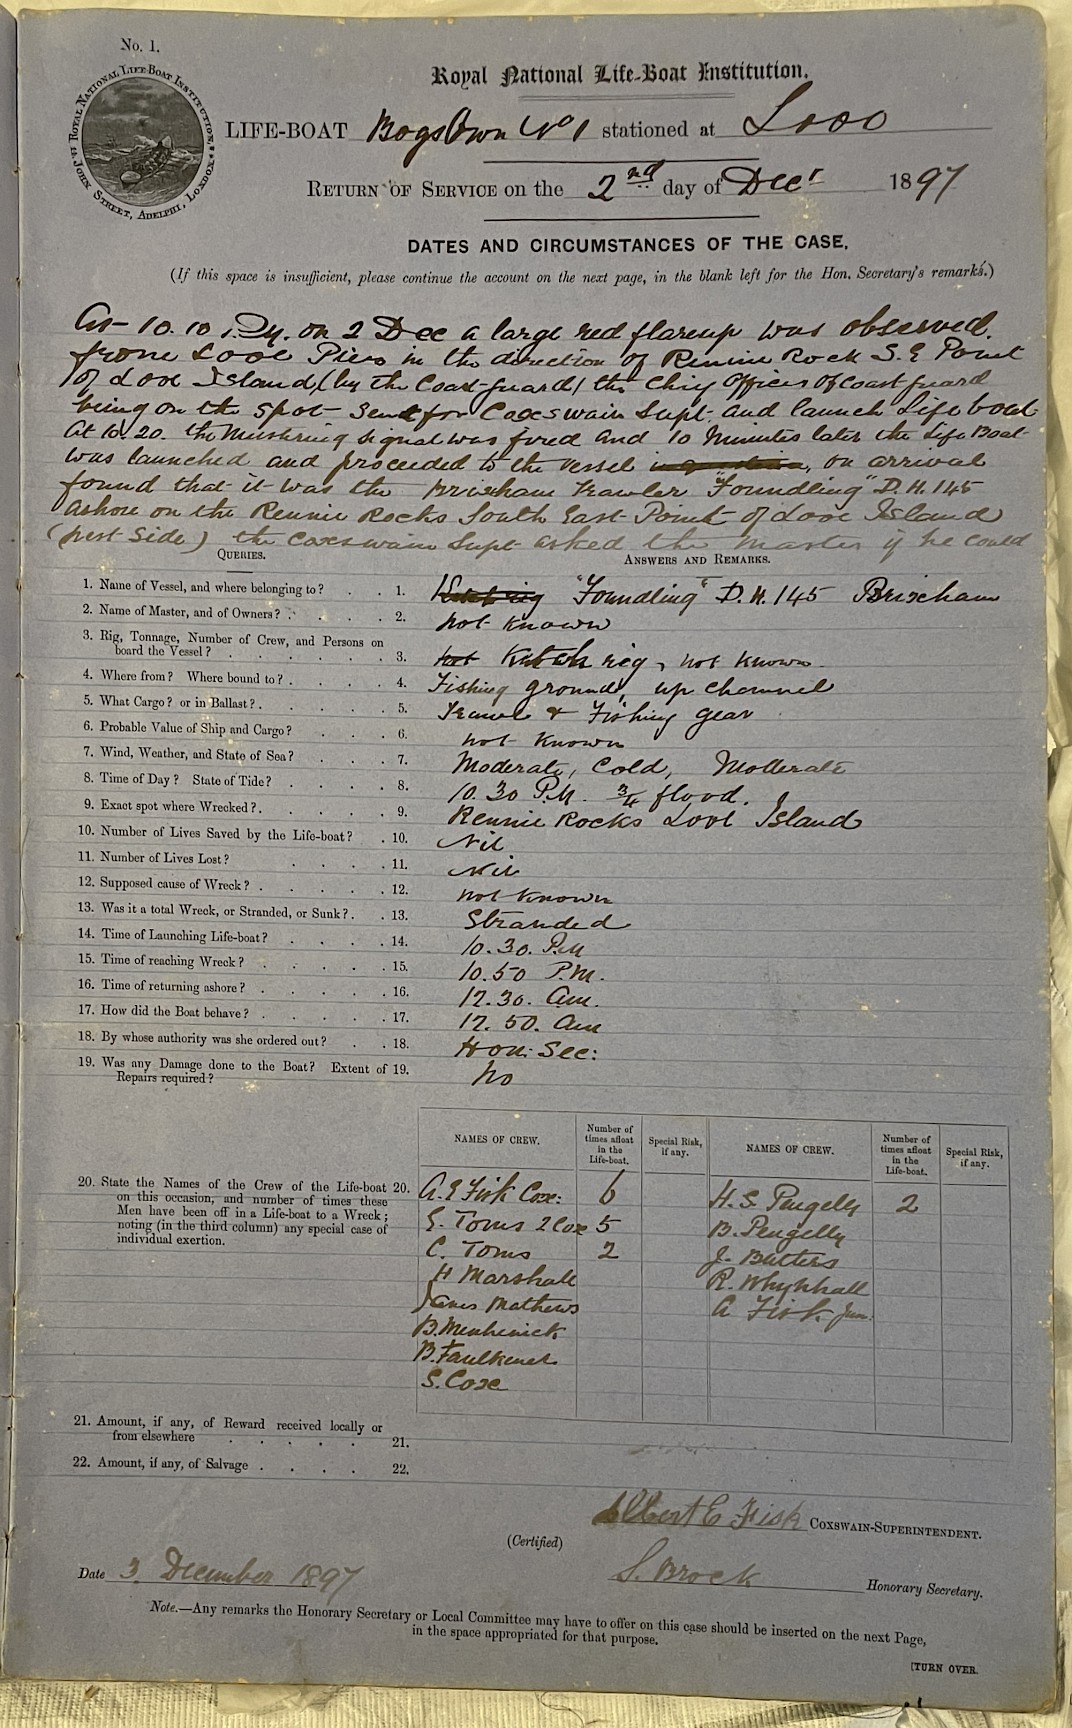 No. 1.
ROYAL NATIONAL LIFE-BOAT INSTITUTION, JOHN STREET, ADELPHI, LONDON
Royal National Life-Boat Institution.
LIFE-BOAT Boys Own No 1 stationed at Looe
RETURN OF SERVICE on the 2nd day of Decr 1897
DATES AND CIRCUMSTANCES OF THE CASE.
(If this space is insufficient, please continue the account on the next page, in the blank left for the Hon. Secretary's remarks.)
At 10.10 P.M. on 2 Dec a large red flareup was observed
from Looe Pier in the direction of Rennie Rock S.E Point
of Looe Island (by the Coast-guard) the Chief Officer of Coastguard
being on the spot sent for Coxswain Supt. and launch Lifeboat
At 10.20. the Mustering signal was fired and 10 Minutes later the Life Boat
was launched and proceeded to the vessel, on arrival
found that it was the Brixham Trawler "Foundling" D.H. 145
ashore on the Rennie Rocks South East Point of Looe Island
(West Side) the Coxswain Supt asked the Master if he could
QUERIES. ANSWERS AND REMARKS.
1. Name of Vessel, and where belonging to? 1. "Foundling" D.H. 145 Brixham
2. Name of Master, and of Owners? 2. not known
3. Rig, Tonnage, Number of Crew, and Persons on
board the Vessel? 3. Ketch rig, not known
4. Where from? Where bound to? 4. Fishing ground, up channel
5. What Cargo? or in Ballast? 5. Trawl & Fishing gear
6. Probable Value of Ship and Cargo? 6. not known
7. Wind, Weather, and State of Sea? 7. Moderate, Cold, Moderate
8. Time of Day? State of Tide? 8. 10.30 P.M. 3/4 flood.
9. Exact spot where Wrecked? 9. Rennie Rocks Looe Island
10. Number of Lives Saved by the Life-boat? 10. Nil
11. Number of Lives Lost? 11. Nil
12. Supposed cause of Wreck? 12. not known
13. Was it a total Wreck, or Stranded, or Sunk? 13. Stranded
14. Time of Launching Life-boat? 14. 10.30. P.M
15. Time of reaching Wreck? 15. 10.50 P.M.
16. Time of returning ashore? 16. 12.30. Am.
17. How did the Boat behave? 17. 12.50. Am
18. By whose authority was she ordered out? 18. Hon: Sec:
19. Was any Damage done to the Boat? Extent of 19. No
Repairs required?
NAMES OF CREW. Number of times afloat in the Life-boat. Special Risk, if any. NAMES OF CREW. Number of times afloat in the Life-boat. Special Risk, if any.
20. State the Names of the Crew of the Life-boat 20.
on this occasion, and number of times these
Men have been off in a Life-boat to a Wreck;
noting (in the third column) any special case of
individual exertion.
A. E Fisk Coxs: 6 H. S. Pengelly 2
E. Toms 2 Cox 5 B. Pengelly
C. Toms 2 J. Butters
H Marshall R. Whynhall
James Mathews A Fisk Jun.
B. Menhenick
B. Faulkener
S. Coxe
21. Amount, if any, of Reward received locally or
from elsewhere 21.
22. Amount, if any, of Salvage 22.
Albert E Fisk COXSWAIN-SUPERINTENDENT.
(Certified)
Date 3 December 1897 S. Brock Honorary Secretary.
Note.—Any remarks the Honorary Secretary or Local Committee may have to offer on this case should be inserted on the next Page,
in the space appropriated for that purpose.
[TURN OVER.